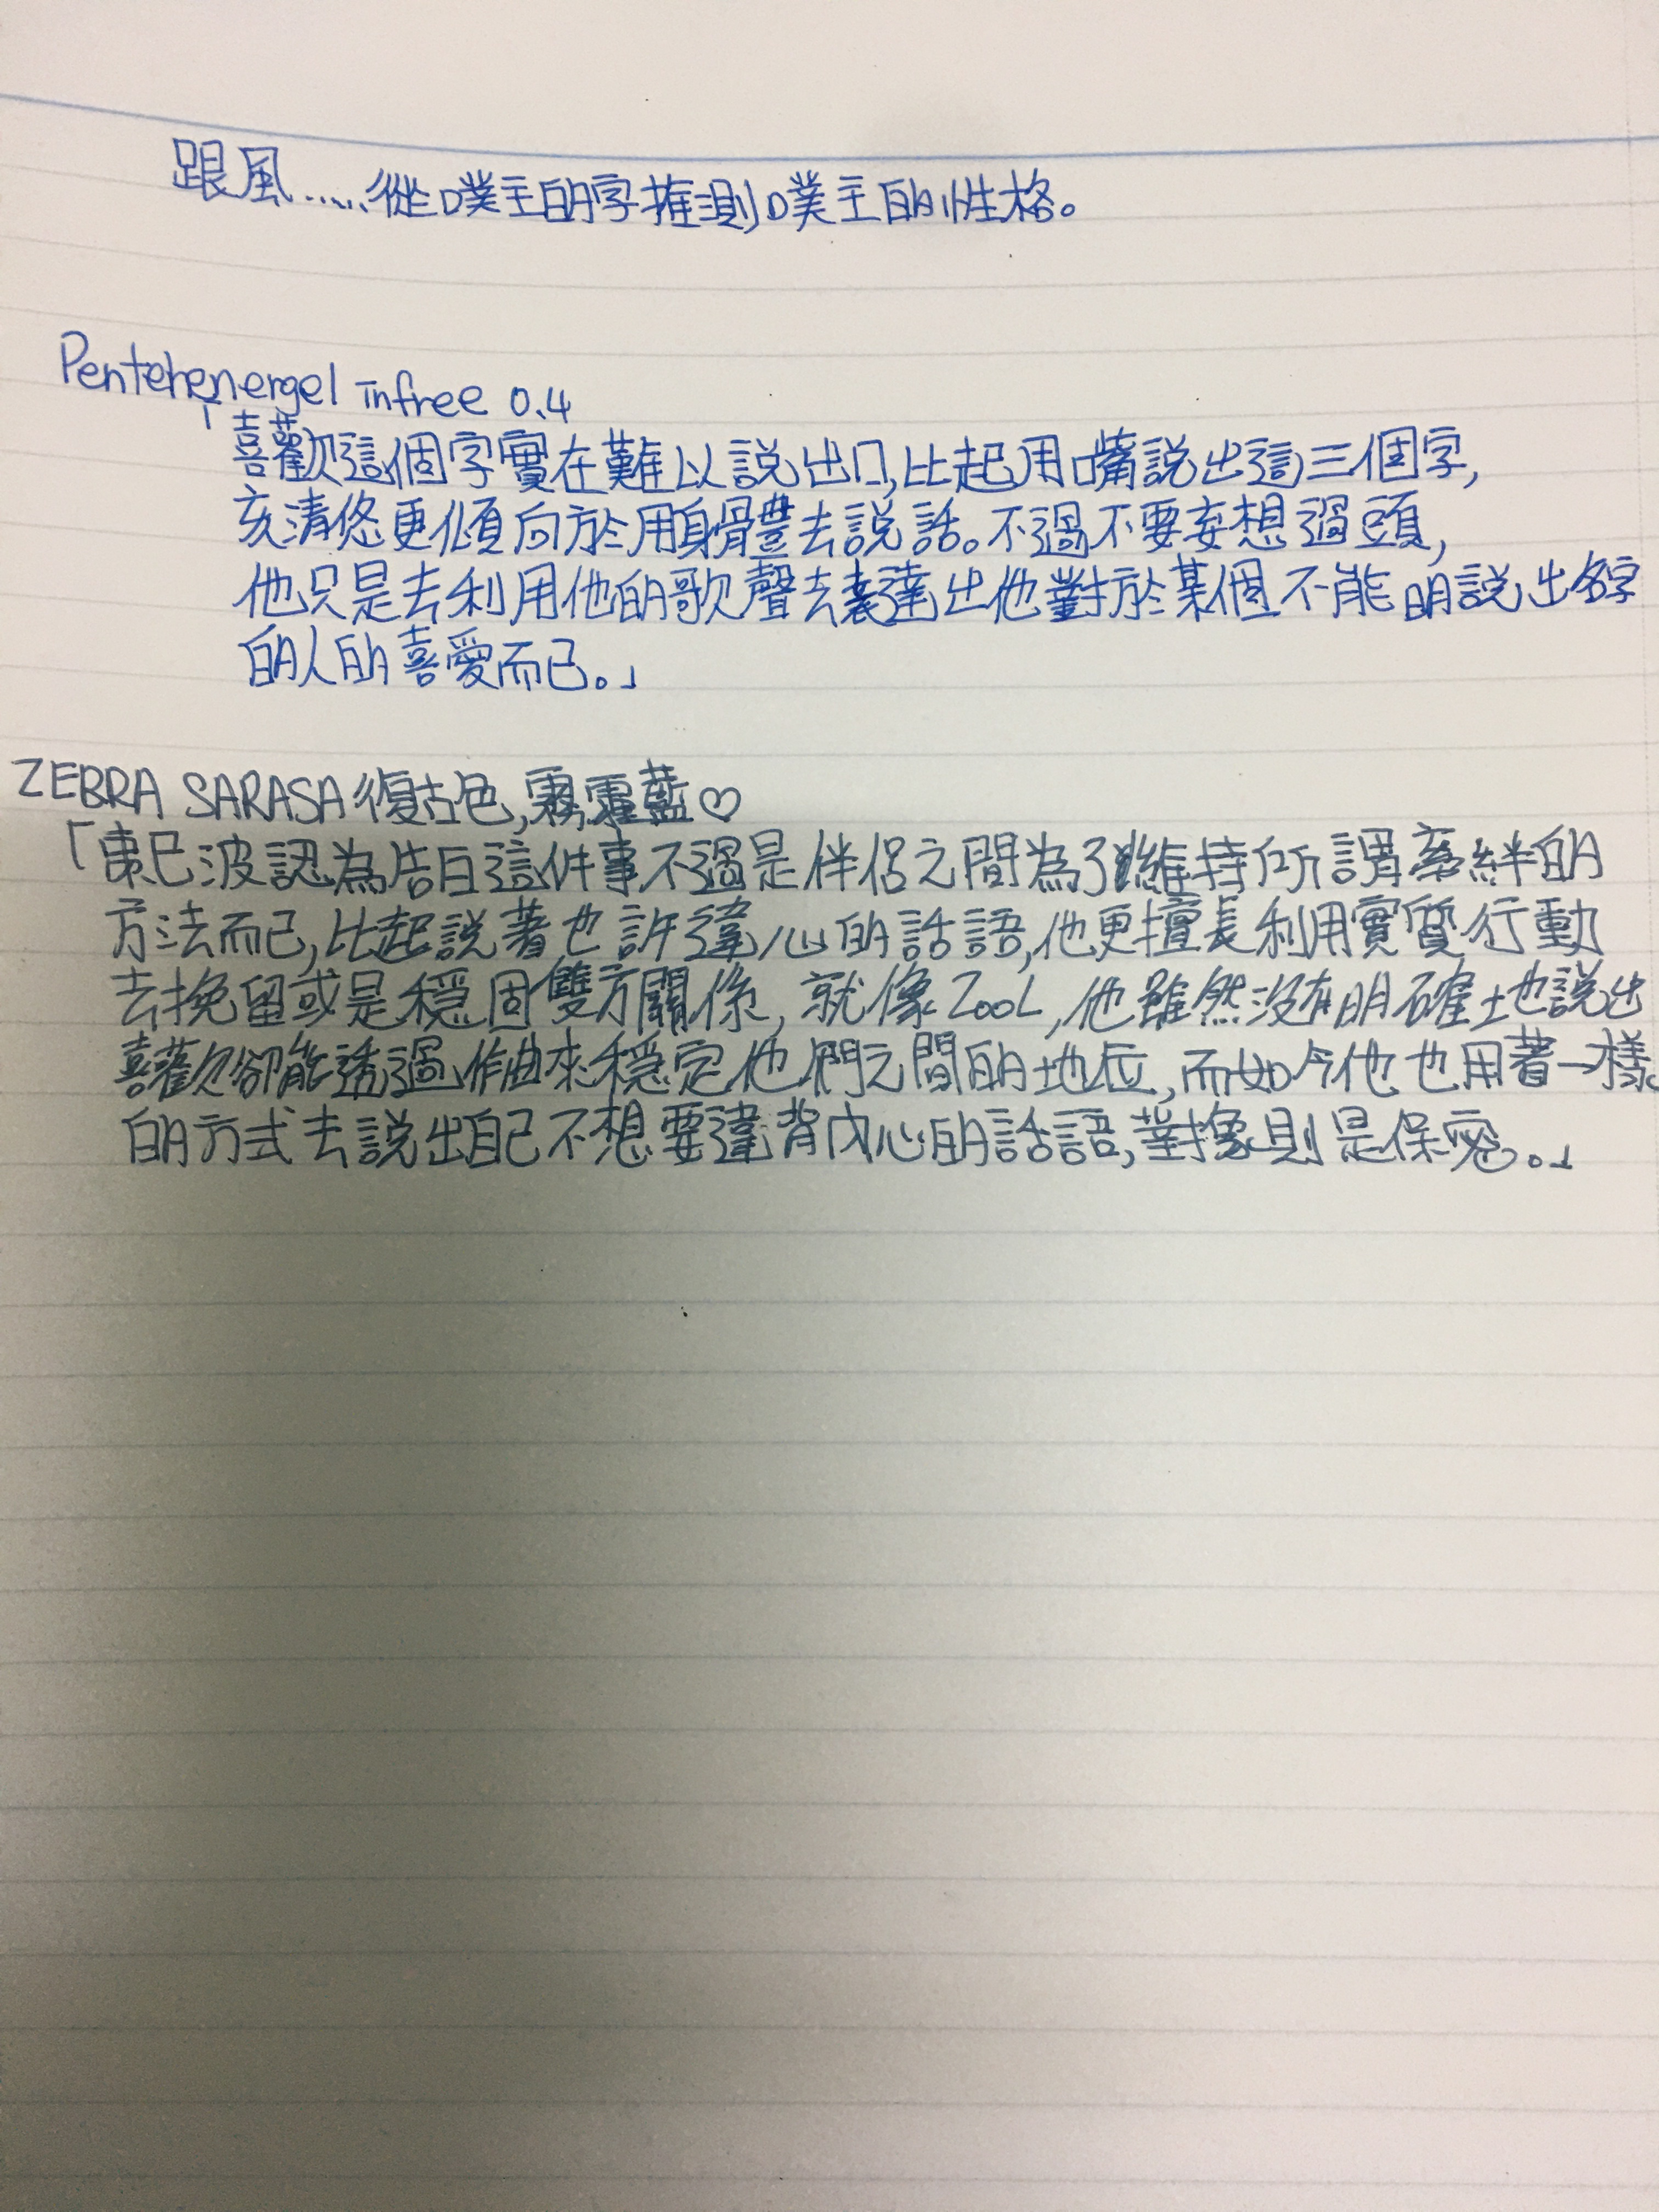 跟風......從噗主的字推測噗主的性格。
Pentehenergel infree 0.4
「喜歡這個字實在難以說出口,比起用嘴說出這三個字,
亥清悠更傾向於用身體去說話。不過不要妄想過頭,
他只是去利用他的歌聲去表達出他對於某個不能明說出名字
的人的喜愛而已。」
ZEBRA SARASA復古色,霧霾藍♡
「棗巳波認為告白這件事不過是伴侶之間為了維持所謂牽絆的
方法而已,比起說著也許違心的話語,他更擅長利用實質行動
去挽留或是穩固雙方關係,就像ZOOL,他雖然沒有明確地說出
喜歡卻能透過作曲來穩定他們之間的地位,而如今他也用著一樣
的方式去說出自己不想要違背內心的話語,對象則是保密。」